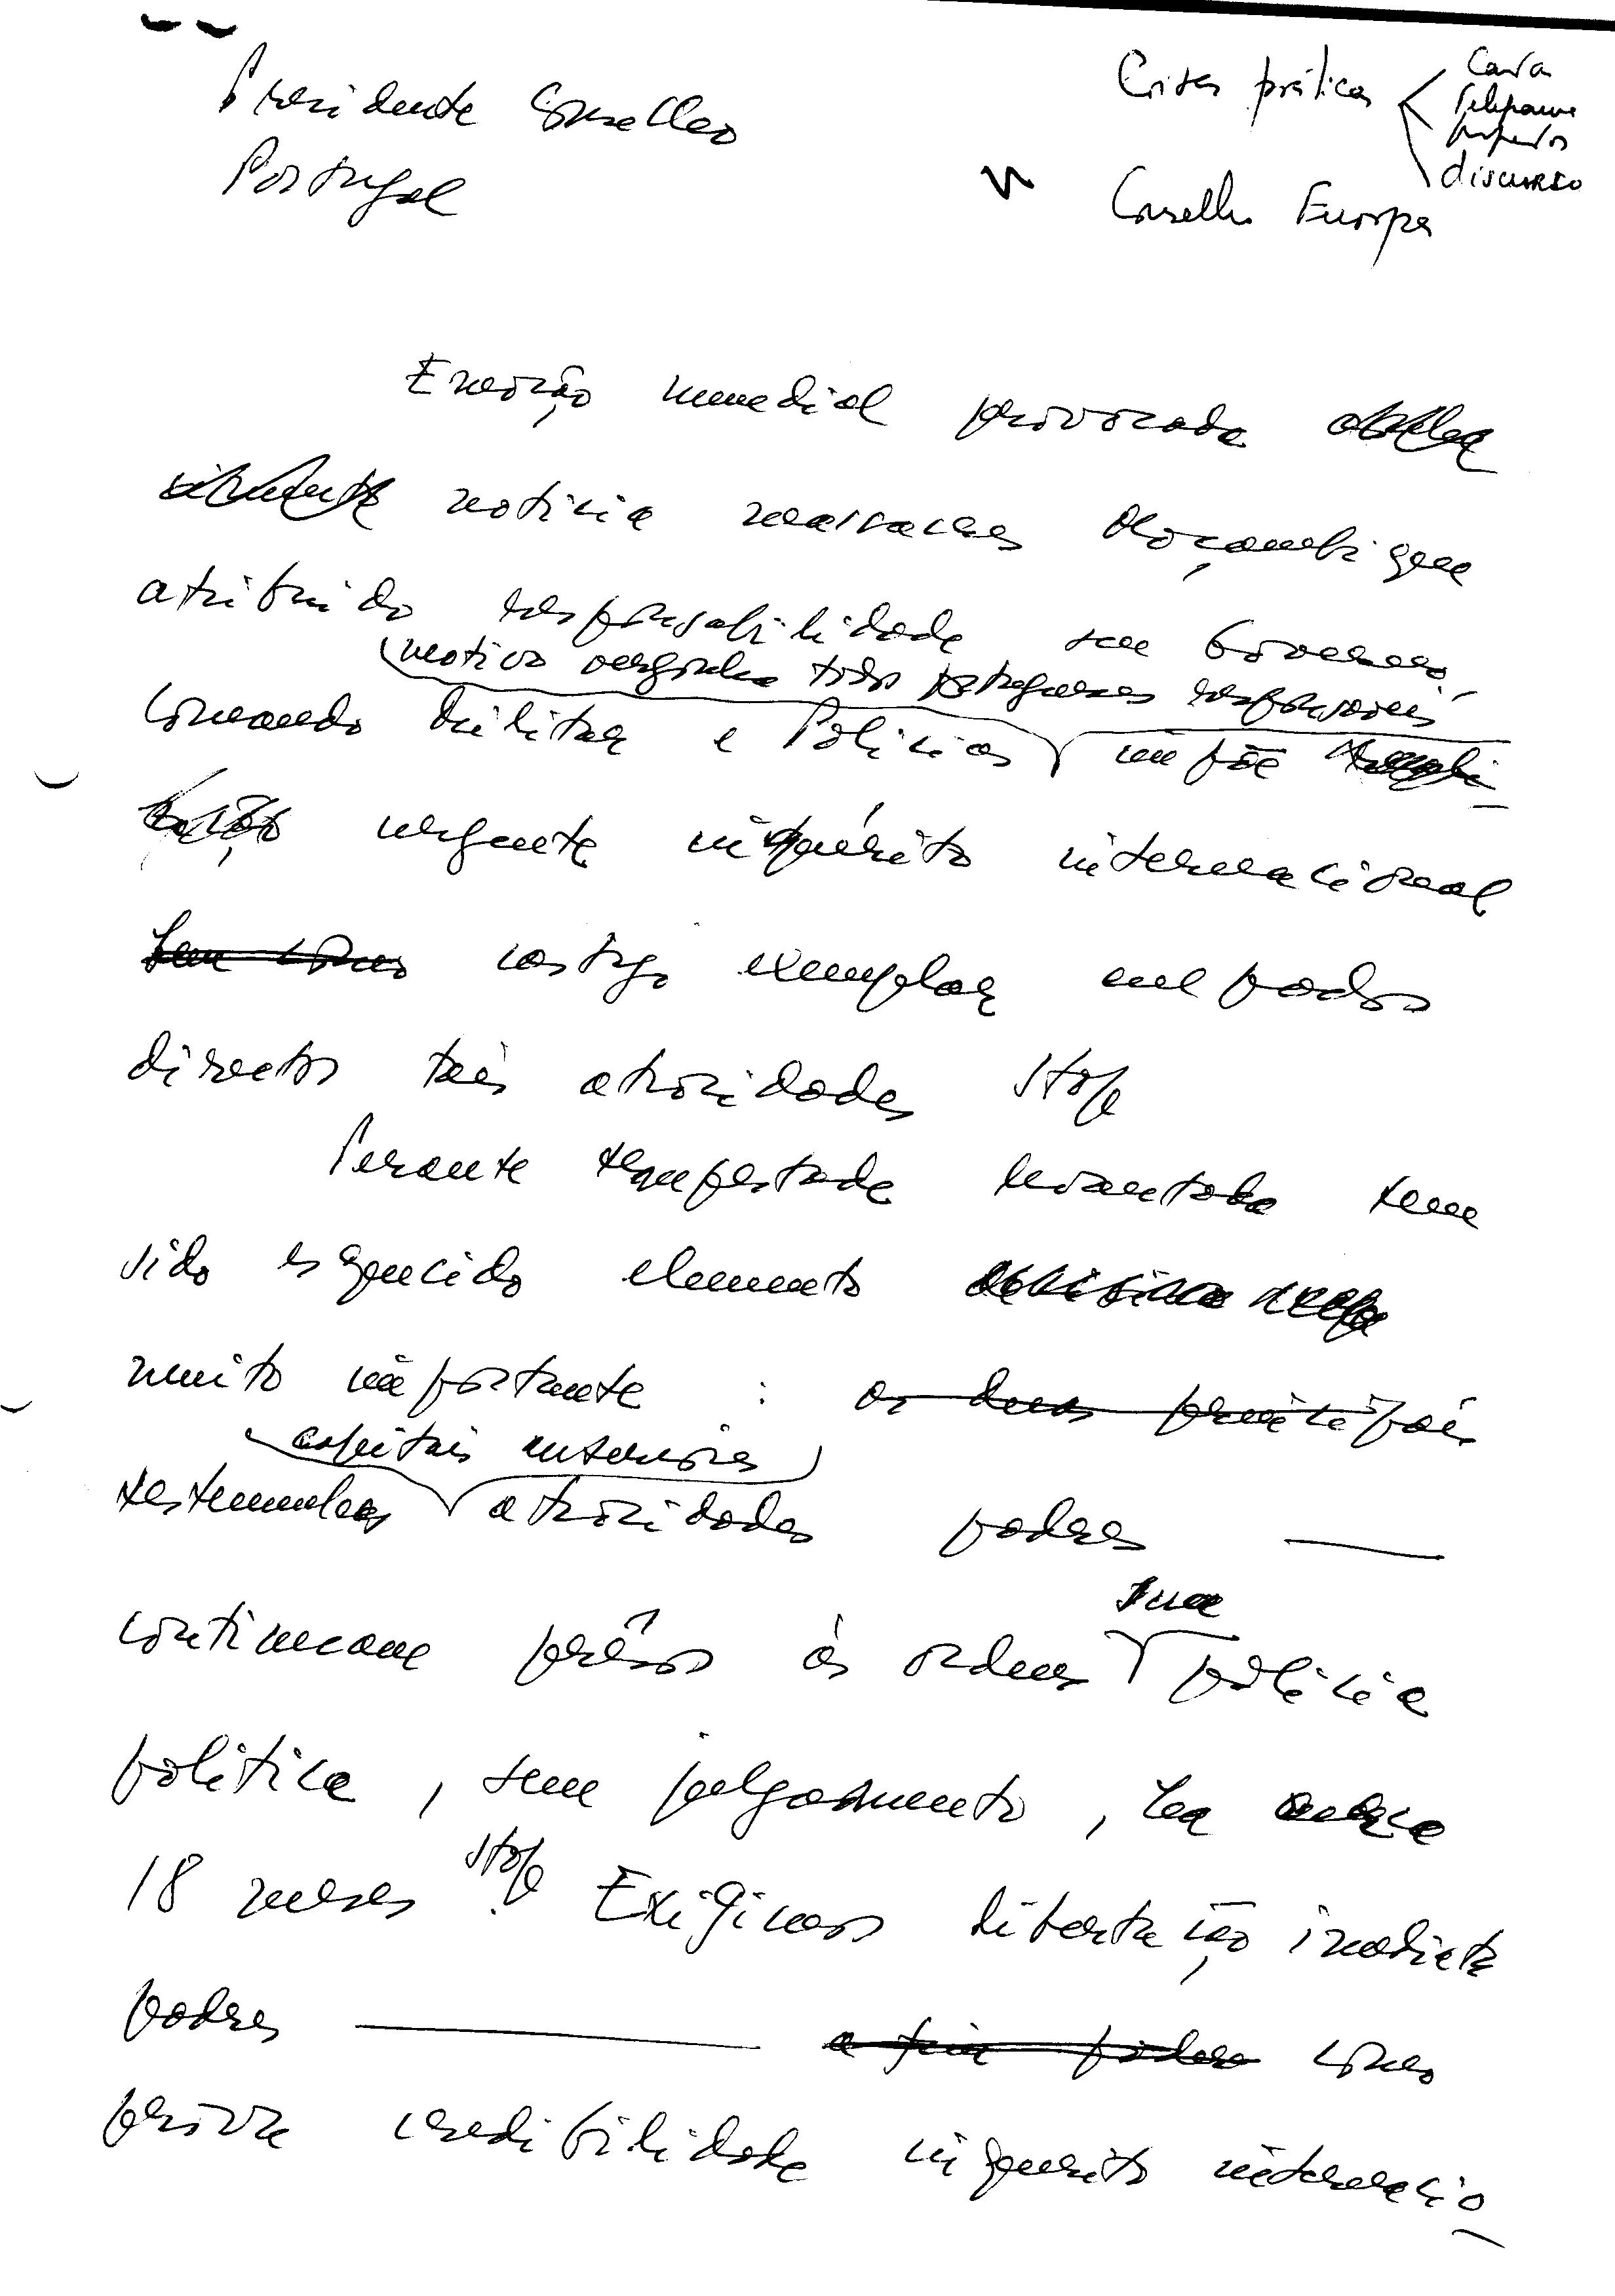 Presidente Conselho
Portugal
Coisas práticas
Carta
Telegrama
papados
discurso
Conselho Europa
Emoção mundial provocada
notícia massacres Moçambique
atribuído responsabilidade seu Governo,
motivo vergonha todos portugueses responsáveis
Comando Militar e Polícias impõe
urgente inquérito internacional
bem como castigo exemplar culpados
directos tais atrocidades stop
Perante tempestade levantada tem
sido esquecido elemento
muito importante : os dois principais
capitais anteriores
testemunhas atrocidades padres —
continuam prêsos às ordens
sua
polícia
política, sem julgamento, há cerca
18 meses stop Exigimos libertação imediata
padres — a fim poderem como
prova credibilidade inquérito internacio